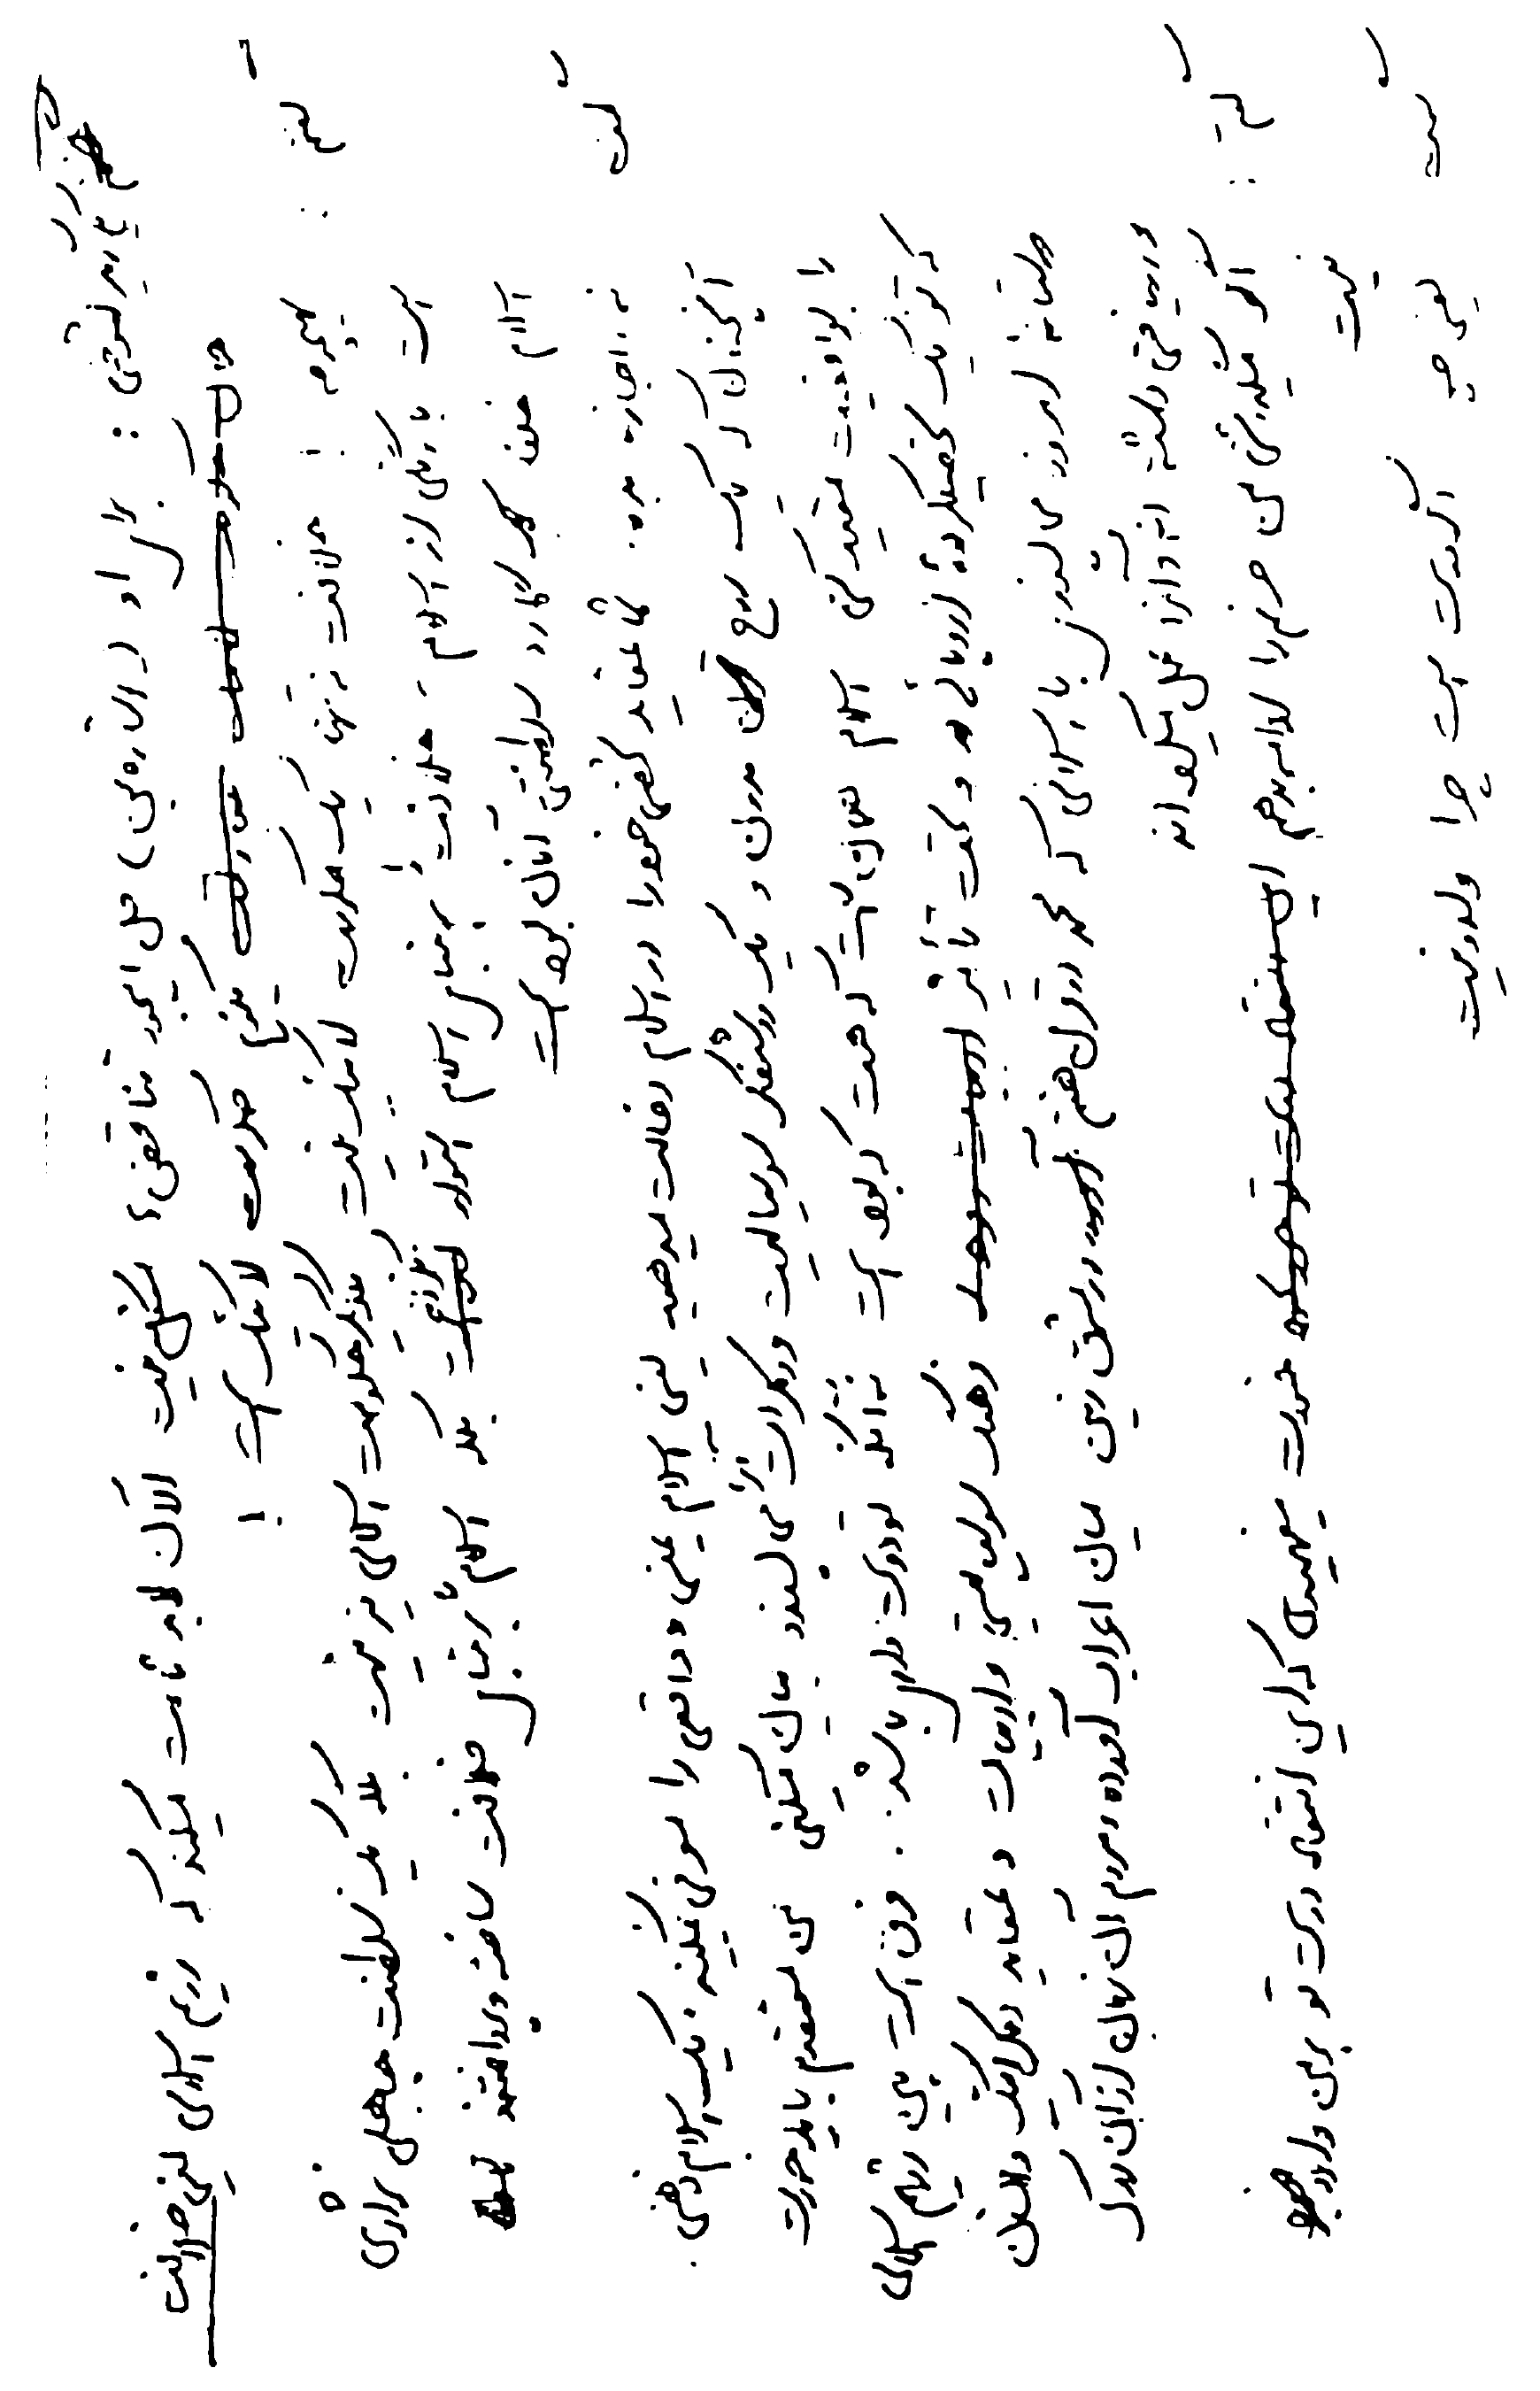 گفتم
گیر نوشتی : برای او (اشاره بمن) حل این جور تناقض‌ها مشکل نیست الآن لابد ثابت میکند که رژیم اسلامی یعنی خلافت
میگوئیم حکومت لائیک است !
گفتم : خلافت نه تنها یک حکومت لائیک نیست بلکه حکومت اسلامی نیز نیست بلکه یک سلطنت جاهلی نژادی
است با رنگی از اسلام، خلافت بر مبنای اسلام استوار نیست بلکه اسلام بر مبنای خلافت ساخته و پرداخته
اسلام خلفا کار سلطنتی آنان بوده است
گفت
نه، اجازه بده. شما عقاید شخصی خود را در اسلام دخالت میدهید یعنی اسلام عینی و واقعی را معرفی نمیکنید. یک اسلام ذهنی.
آنچنان که یک روح متمدن و یک روشنفکر سوسیالیست و دمکرات آنرا می‌پسندد بیان میکنی من معتقدم باید خودت
را به واقعیت مقید کنی اسلام همان است که هست که بوده است نه آنکه تو دوست داری باشد. فرق است بین رژیم اسلامی
که تو یک تحصیلکرده اروپائی و تحت تأثیر فرهنگ سوسیالیستی و ادبیات و عقاید دمکراتیک و انسان
دوستانه امروز می‌اندیشی با اسلامی که محمد در قرن هفتم در مشرق زمین میان اعراب آورده و مردم آن زمان از آن درک
و دریافتی داشته‌اند و آنرا عمل میکرده‌اند
گفتم : اگر میگذاشتی من حرفم را ادامه بدهم خودت میفهمیدی که این انتقاد درست تو بر من وارد
نیست
گفت یعنی چه اگر درست است چرا وارد نیست